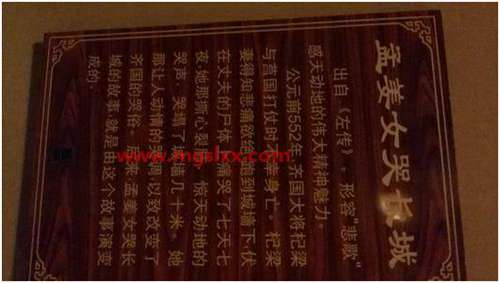 孟姜女哭长城
出自《左传》，形容“悲歌”
感天动地的伟大精神魅力。
公元前552年，齐国大将杞梁
与莒国打仗时不幸身亡。杞梁
妻得知悲痛欲绝，跑到城墙下，伏
在丈夫的尸体上痛哭了七天七
夜，她那撕心裂肺、惊天动地的
哭声，哭塌了城墙几十米。她
那让人动情的哭调，以致改变了
齐国的哭俗。后来，孟姜女哭长
城的故事，就是由这个故事演变
成的。
www.mgslxx.com